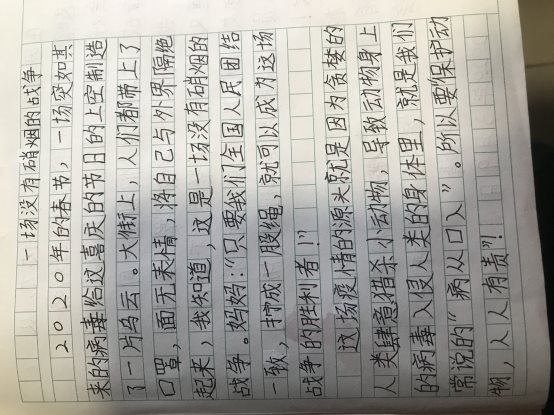 一场没有硝烟的战争
2020年的春节，一场突如其
来的病毒给这喜庆的节日的上空制造
了一片乌云。大街上，人们都带上了
口罩，面无表情，将自己与外界隔绝
起来，我知道，这是一场没有硝烟的
战争。妈妈：“只要我们全国人民团结
一致，拧成一股绳，就可以成为这场
战争的胜利者！”
这场疫情的源头就是因为贪婪的
人类肆意猎杀小动物，导致动物身上
的病毒入侵人类的身体里，就是我们
常说的“病从口入”。所以要保护动
物，人人有责”！